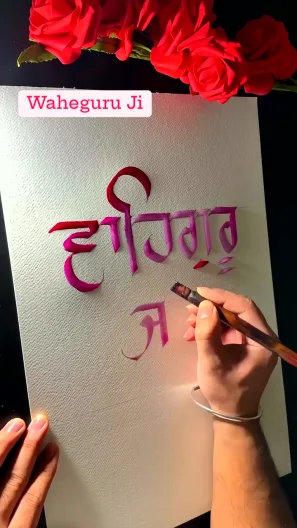 Waheguru Ji
ਵਾਹਿਗੁਰੂ
ਜ